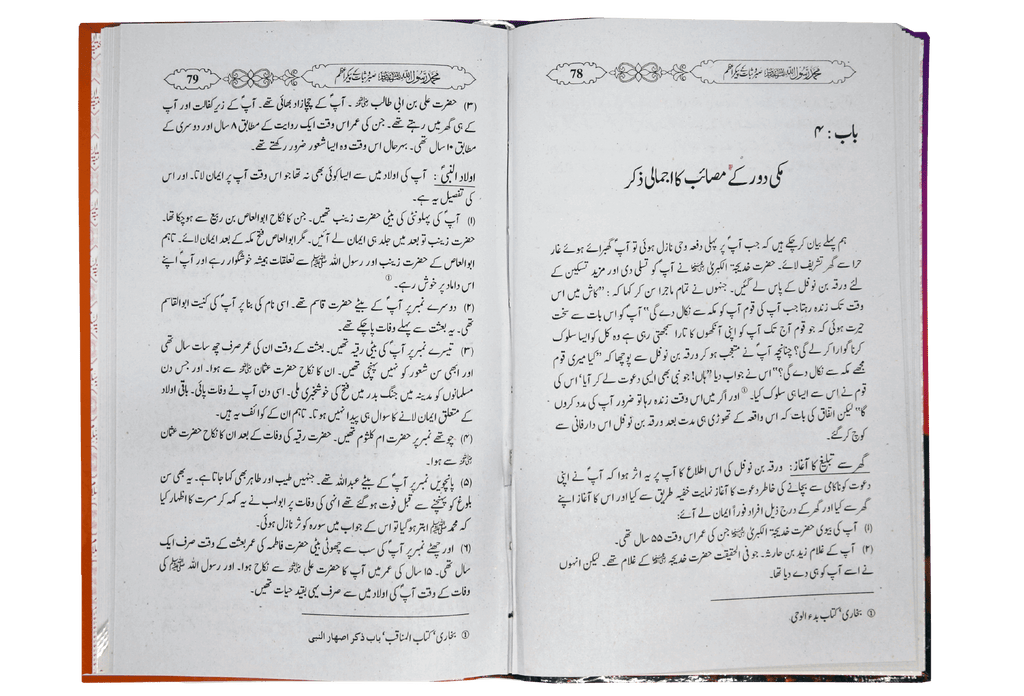 محمد رسول اللہ ﷺ صبر و ثبات کے پیکر اعظم
78
باب : ۴
مکی دور کے مصائب کا اجمالی ذکر
ہم پہلے بیان کر چکے ہیں کہ جب آپؐ پر پہلی دفعہ وحی نازل ہوئی تو آپؐ گھبرائے ہوئے غار
حرا سے گھر تشریف لائے۔ حضرت خدیجۃ الکبریٰ ؓ نے آپؐ کو تسلی دی اور مزید تسکین کے
لئے ورقہ بن نوفل کے پاس لے گئیں۔ جنہوں نے تمام ماجرا سن کر کہا کہ : ”کاش میں اس
وقت تک زندہ رہتا جب آپ کی قوم آپ کو مکہ سے نکال دے گی“ آپ کو اس بات سے سخت
حیرت ہوئی کہ جو قوم آج تک آپ کو اپنی آنکھوں کا تارا سمجھتی رہی ہے وہ کل کو ایسا سلوک
کرنا گوارا کر لے گی؟ چنانچہ آپؐ نے متعجب ہو کر ورقہ بن نوفل سے پوچھا کہ ”کیا میری قوم
مجھے مکہ سے نکال دے گی؟“ اس نے جواب دیا ”ہاں! جو نبی بھی ایسی دعوت لے کر آیا‘ اس کی
قوم نے اس سے ایسا ہی سلوک کیا۔① اور اگر میں اس وقت زندہ رہا تو ضرور آپ کی مدد کروں
گا“ لیکن اتفاق کی بات کہ اس واقعہ کے تھوڑی ہی مدت بعد ورقہ بن نوفل اس دار فانی سے
کوچ کر گئے۔
گھر سے تبلیغ کا آغاز : ورقہ بن نوفل کی اس اطلاع کا آپ پر یہ اثر ہوا کہ آپؐ نے اپنی
دعوت کو ناکامی سے بچانے کی خاطر دعوت کا آغاز نہایت خفیہ طریق سے کیا اور اس کا آغاز اپنے
گھر سے کیا اور گھر کے درج ذیل افراد فوراً ایمان لے آئے :
(۱) آپ کی بیوی حضرت خدیجۃ الکبریٰ ؓ جن کی عمر اس وقت ۵۵ سال تھی۔
(۲) آپ کے غلام زید بن حارثہ۔ جو فی الحقیقت حضرت خدیجہ ؓ کے غلام تھے۔ لیکن انہوں
نے اسے آپ کو ہی دے دیا تھا۔
① بخاری‘ کتاب بدء الوحی۔
محمد رسول اللہ ﷺ صبر و ثبات کے پیکر اعظم
79
(۳) حضرت علی بن ابی طالب ؓ۔ آپؐ کے چچازاد بھائی تھے۔ آپؐ کے زیر کفالت اور آپ
کے ہی گھر میں رہتے تھے۔ جن کی عمر اس وقت ایک روایت کے مطابق ۸ سال اور دوسری کے
مطابق ۱۰ سال تھی۔ بہرحال اس وقت وہ ایسا شعور ضرور رکھتے تھے۔
اولاد النبیؐ : آپ کی اولاد میں سے ایسا کوئی بھی نہ تھا جو اس وقت آپ پر ایمان لاتا۔ اور اس
کی تفصیل یہ ہے۔
(۱) آپؐ کی پہلونٹی کی بیٹی حضرت زینب تھیں۔ جن کا نکاح ابوالعاص بن ربیع سے ہو چکا تھا۔
حضرت زینب تو بعد میں جلد ہی ایمان لے آئیں۔ مگر ابوالعاص فتح مکہ کے بعد ایمان لائے۔ تاہم
ابوالعاص کے حضرت زینب اور رسول اللہ ﷺ سے تعلقات ہمیشہ خوشگوار رہے اور آپؐ اپنے
اس داماد پر خوش رہے۔①
(۲) دوسرے نمبر پر آپؐ کے بیٹے حضرت قاسم تھے۔ اسی نام کی بنا پر آپؐ کی کنیت ابوالقاسم
تھی۔ یہ بعثت سے پہلے وفات پا چکے تھے۔
(۳) تیسرے نمبر پر آپؐ کی بیٹی رقیہ تھیں۔ بعثت کے وقت ان کی عمر صرف چھ سات سال تھی
اور ابھی سن شعور کو نہیں پہنچی تھیں۔ ان کا نکاح حضرت عثمان ؓ سے ہوا۔ اور جس دن
مسلمانوں کو مدینہ میں جنگ بدر میں فتح کی خوشخبری ملی۔ اسی دن آپ نے وفات پائی۔ باقی اولاد
کے متعلق ایمان لانے کا سوال ہی پیدا نہیں ہوتا۔ تاہم ان کے کوائف یہ ہیں۔
(۴) چوتھے نمبر پر حضرت ام کلثوم تھیں۔ حضرت رقیہ کی وفات کے بعد ان کا نکاح حضرت عثمان
ؓ سے ہوا۔
(۵) پانچویں نمبر پر آپؐ کے بیٹے عبداللہ تھے۔ جنہیں طیب اور طاہر بھی کہا جاتا ہے۔ یہ بھی سن
بلوغ کو پہنچنے سے قبل فوت ہو گئے تھے انہی کی وفات پر ابولہب نے یہ کہہ کر مسرت کا اظہار کیا
کہ محمد ﷺ ابتر ہو گیا تو اس کے جواب میں سورہ کوثر نازل ہوئی۔
(۶) اور چھٹے نمبر پر آپؐ کی سب سے چھوٹی بیٹی حضرت فاطمہ کی عمر بعثت کے وقت صرف ایک
سال تھی۔ ۱۵ سال کی عمر میں آپ کا حضرت علی ؓ سے نکاح ہوا۔ اور رسول اللہ ﷺ کی
وفات کے وقت آپؐ کی اولاد میں سے صرف یہی بقید حیات تھیں۔
① بخاری‘ کتاب المناقب‘ باب ذکر اصهار النبی